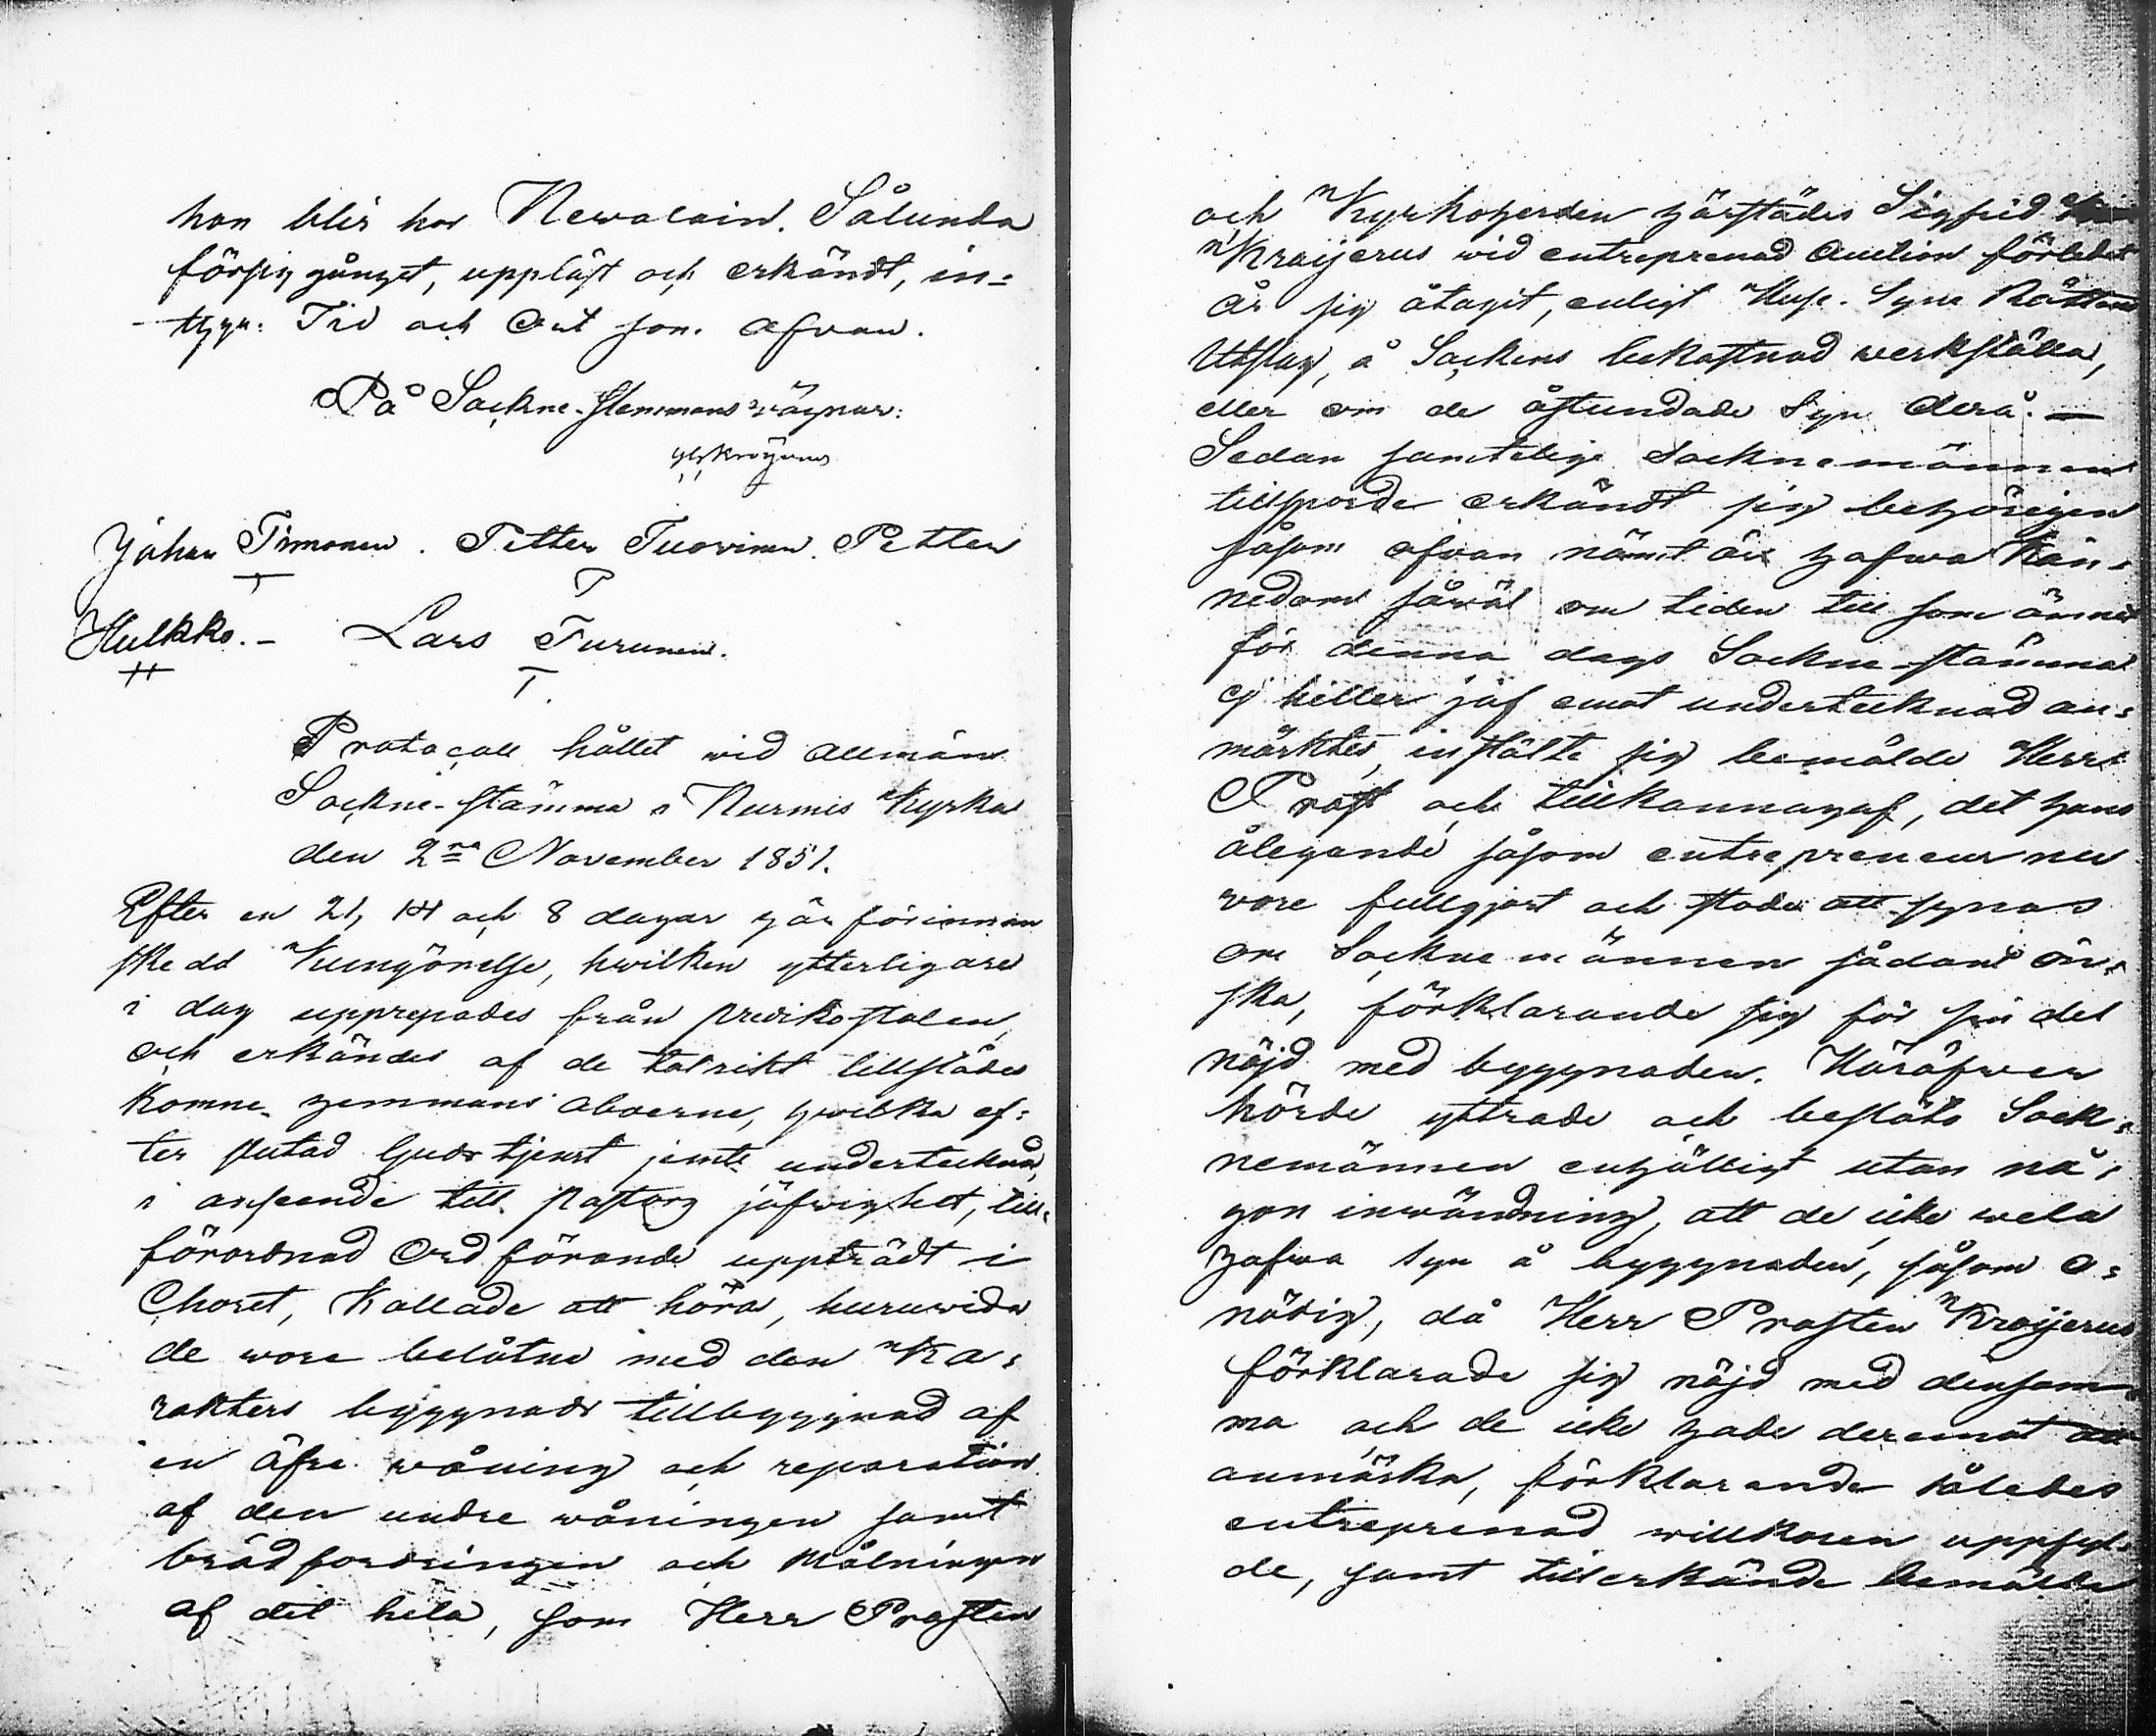 han blir hos Newalain. Sålunda
försig gånget, uppläst och erkändt, in=
tyga: Tid och Ort som ofvan.
På Sockne-Stemmans vägnar:
Johan Timonen. Petter Tuovinen. Petter
T T
Hulkko.- Lars Turunen.
H T.
Protocoll hållet wid allmän
Sockne-stämma i Nurmis Kyrka
den 2na November 1851.
Efter en 21, 14 och 8 dagar här förinnan
skedd Kungörelse, hwilken ytterligare
i dag upprepades från predikostolen,
och erkändes af de talrikt tillstädes
komne hemmans åboerne, hwilka ef=
ter slutad Gudstjenst jemte undertecknad,
i anseende till Pastors jäfwighet, till=
förordnad Ordförande uppträdt i
Choret, Kallade att höra, huruwida
de wore belåtne med den Ka=
rakters byggnads tillbyggnad af
en öfre wåning och reparation
af den undre wåningen samt
brädfordringen och Målningen
af det hela, som Herr Prosten
och Kyrkoherden härstädes Sigfrid
Kroijerus wid entreprenad Auction förledet
år sig åtagit, enligt Huse-Syns Rättens
Utslag, å Sockens bekostnad werkställa,
eller om de åstundade Syn derå. —
Sedan samtelige Socknemännen
tillsporde erkändt sig behörigen
såsom ofvan nämt är hafwa Kän=
nedom såwäl om tiden till som ämnet
för denna dags Sockne-stämma
ej heller jäf emot undertecknad an=
märktes, instälte sig bemälde Herr
Prost och tillkännagaf, det hans
åligande såsom entrepreneur nu
vore fullgjort och stode att synas
om Socknemännen sådant ön=
ska, förklarande sig för sin del
nöjd med byggnaden. Häröfwer
hörde yttrade och beslöto Sock=
nemännen enhälligt utan nå=
gon inwändning, att de icke wela
hafwa Syn å byggnaden, såsom o=
nödig, då Herr Prosten Kroijerus
förklarade sig nöjd med densam=
ma och de icke hade deremot att
anmärka, förklarande således
entreprenad willkoren uppfyl=
de, samt tillerkände bemälde